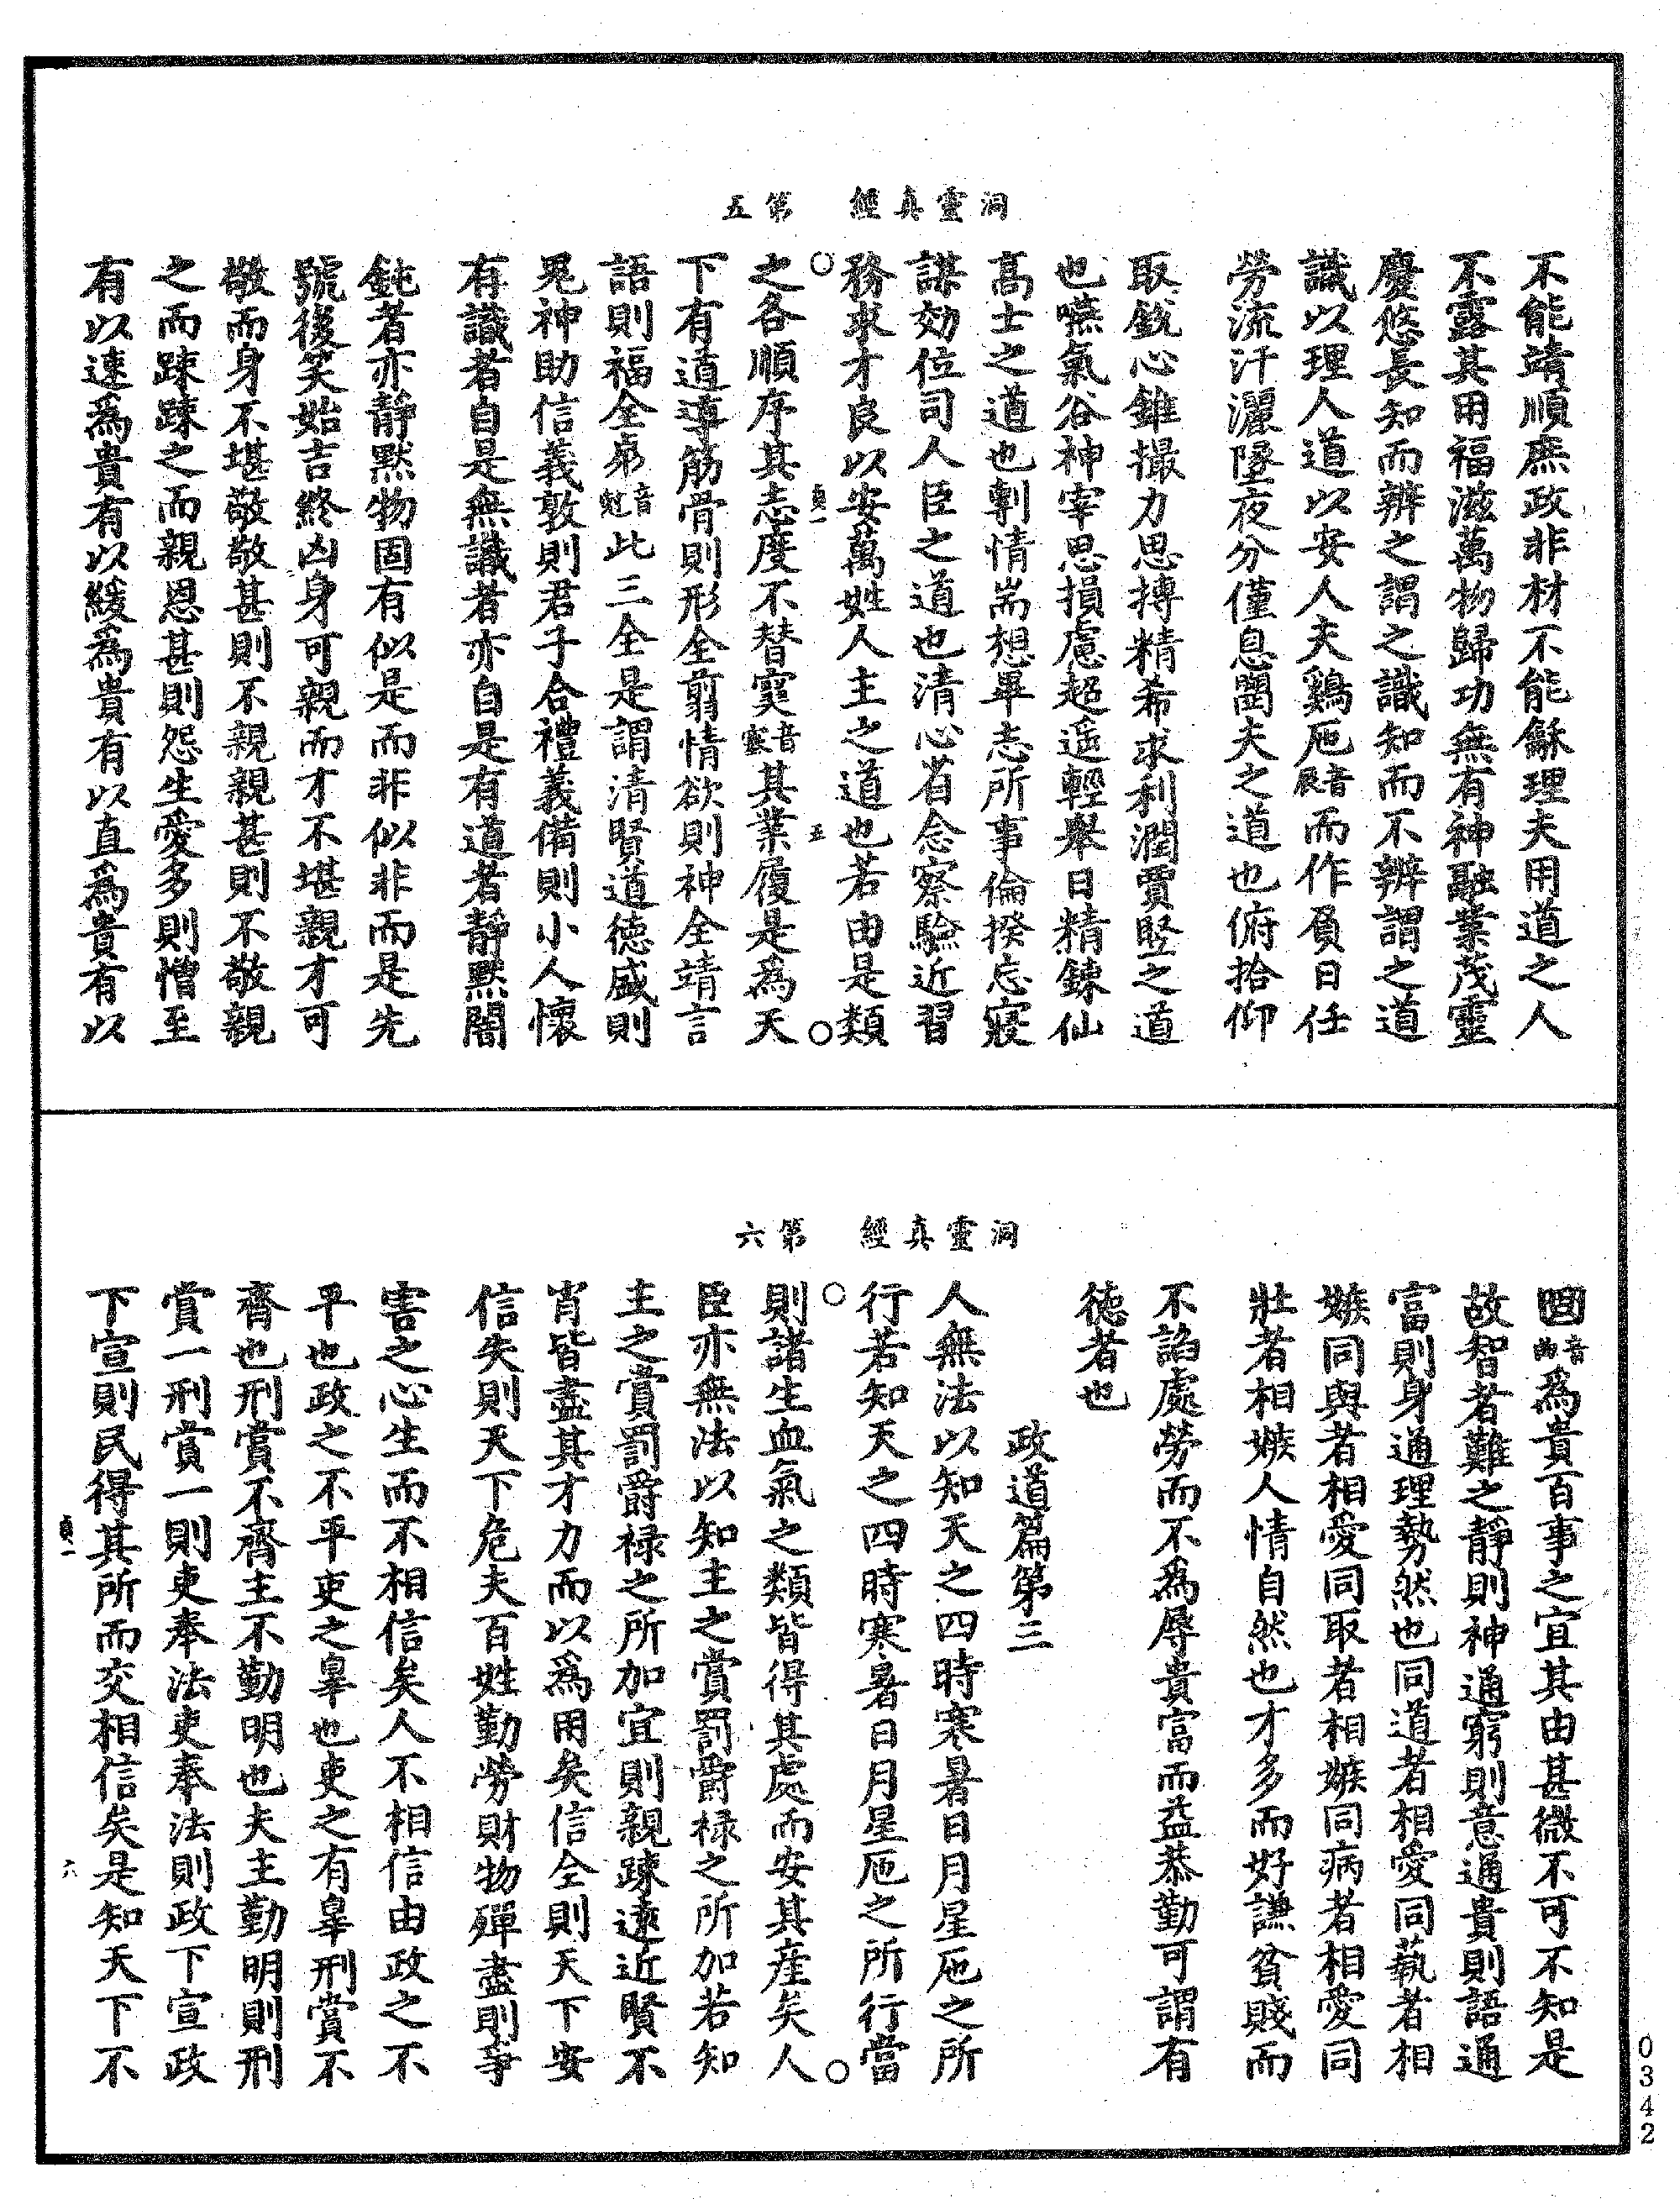 洞靈真經　第五
不能靖順庶政非材不能龢理夫用道之人
不露其用福滋萬物歸功無有神融業茂靈
慶悠長知而辨之謂之識知而不辨謂之道
識以理人道以安人夫鷄卮音辰而作負日任
勞流汗灑墬夜分僅息罔夫之道也俯拾仰
取銳心錐撮力思搏精希求利潤賈竪之道
也嚥氣谷神宰思損慮超遥輕舉日精鍊仙
髙士之道也剸情耑想畢志所事倫揆忘寢
謀効位司人臣之道也清心省念察驗近習
務求才良以安萬姓人主之道也若由是類
貞一　五
之各順序其志度不替窫音塞其業履是為天
下有道導筋骨則形全翦情欲則神全靖言
語則福全帍音魁此三全是謂清賢道徳盛則
鬼神助信義敦則君子合禮義備則小人懷
有識者自是無識者亦自是有道者靜默闇
鈍者亦靜默物固有似是而非似非而是先
號後笑始吉終凶身可親而才不堪親才可
敬而身不堪敬敬甚則不親親甚則不敬親
之而踈踈之而親恩甚則怨生愛多則憎至
有以速為貴有以緩為貴有以直為貴有以
洞靈真經　第六
音曲為貴百事之宜其由甚微不可不知是
故智者難之靜則神通窮則意通貴則語通
富則身通理勢然也同道者相愛同蓺者相
嫉同與者相愛同取者相嫉同病者相愛同
壯者相嫉人情自然也才多而好謙貧賤而
不諂處勞而不為辱貴富而益恭勤可謂有
徳者也
政道篇第三
人無法以知天之四時寒暑日月星卮之所
行若知天之四時寒暑日月星卮之所行當
則諸生血氣之類皆得其處而安其産矣人
臣亦無法以知主之賞罰爵禄之所加若知
主之賞罰爵禄之所加宜則親踈遠近賢不
肖皆盡其才力而以為用矣信全則天下安
信失則天下危夫百姓勤勞財物殫盡則爭
害之心生而不相信矣人不相信由政之不
平也政之不平吏之辠也吏之有辠刑賞不
齊也刑賞不齊主不勤明也夫主勤明則刑
賞一刑賞一則吏奉法吏奉法則政下宣政
下宣則民得其所而交相信矣是知天下不
貞一　六
0342